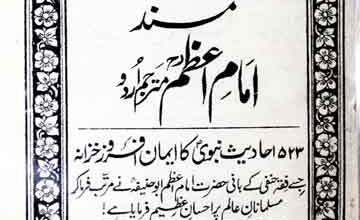 مسند
امام اعظمؒ مترجم اردو
۵۲۳ احادیث نبویؐ کا ایمان افروز خزانہ
جسے فقہ حنفی کے بانی حضرت امام اعظم ابو حنیفہؒ نے مرتب فرما کر
مسلمانانِ عالم پر احسان عظیم فرمایا ہے!